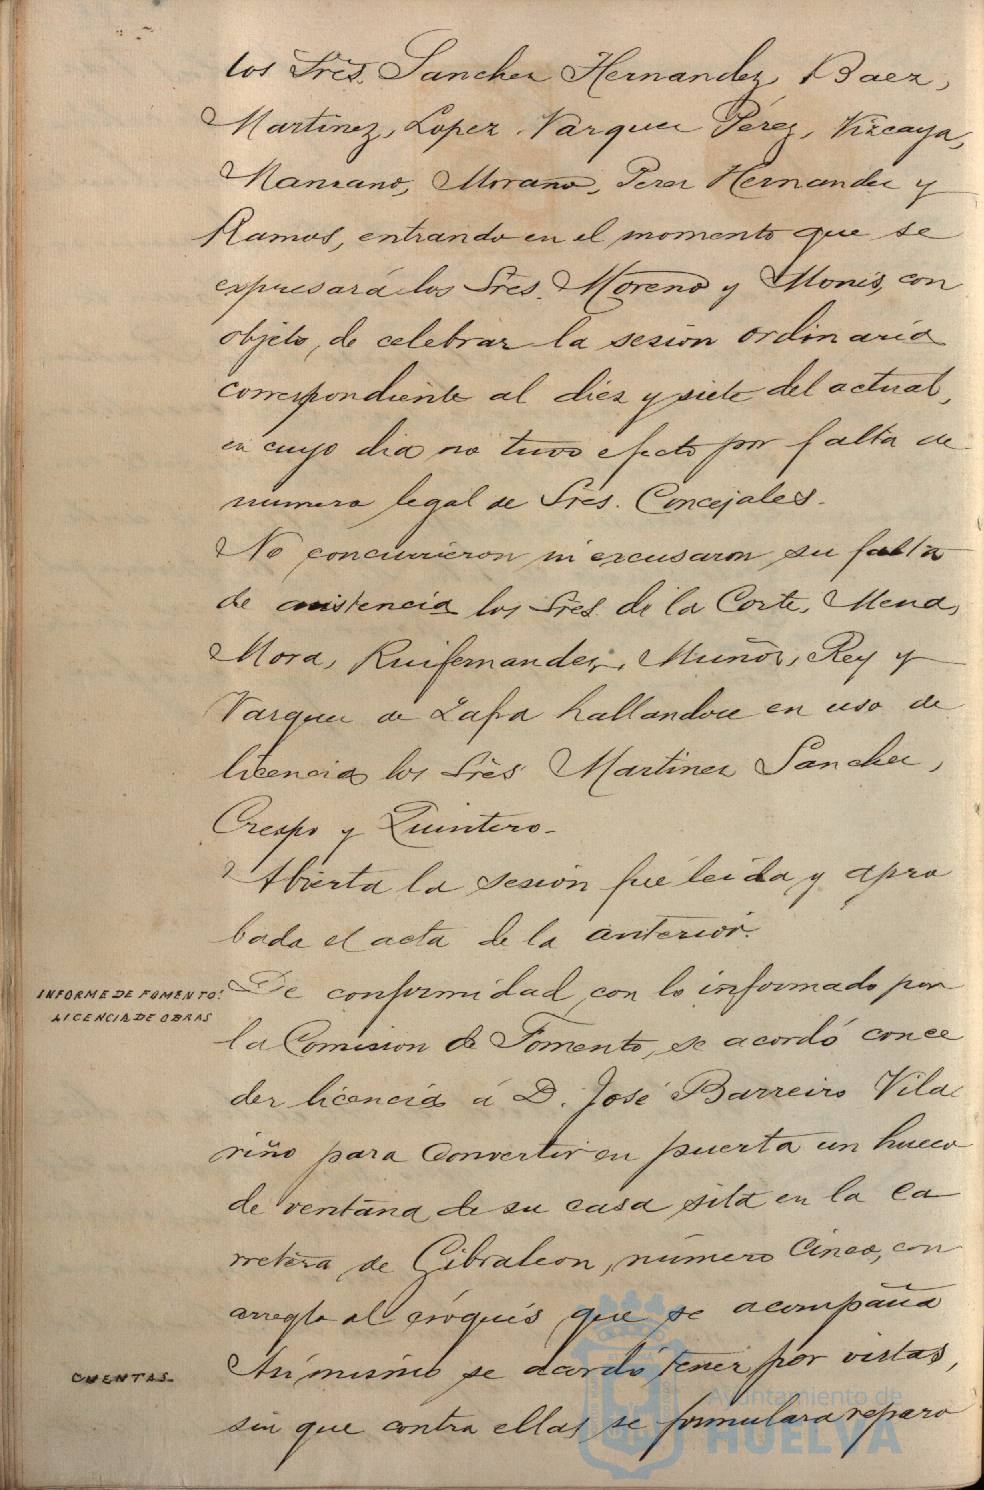 los Sres. Sanchez Hernandez, Baez,
Martinez, Lopez, Varquez Pérez, Vizcaya,
Manzano, Morano, Perez Hernandez y
Ramos, entrando en el momento que se
expresará los Sres. Moreno y Monís, con
objeto, de celebrar la sesion ordinaria
correspondiente al diez y siete del actual,
en cuyo dia no tuvo efecto por falta de
numero legal de Sres. Concejales.
No concurrieron ni excusaron su falta
de asistencia los Sres. de la Corte, Mena,
Mora, Ruifernandez, Muñoz, Rey y
Varquez de Zafra hallandose en uso de
licencia los Sres Martinez Sanchez,
Crespo y Quintero.
Abierta la sesion fué leida y apro
bada el acta de la anterior.
INFORME DE FOMENTO:
LICENCIA DE OBRAS
De conformidad con lo informado por
la Comision de Fomento, se acordó conce
der licencia á D. José Barreiro Vila
riño para convertir en puerta un hueco
de ventana de su casa sita en la ca
rretera de Gibraleon, número cinco, con
arreglo al cróquis que se acompaña
CUENTAS.
Asi mismo se acordó tener por vistas,
sin que contra ellas se formulara reparo
Ayuntamiento de
HUELVA